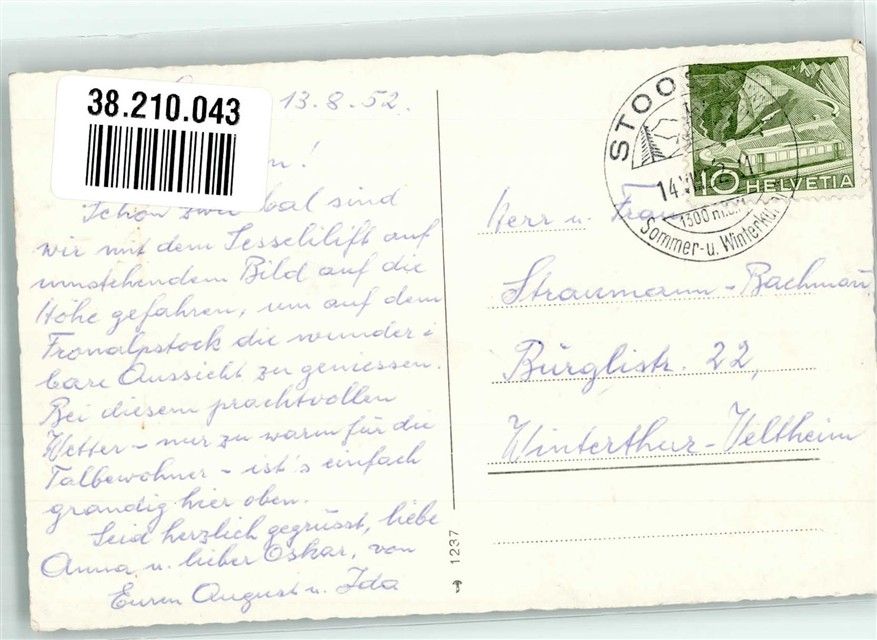 38.210.043
13.8.52.
Schon zwei bal sind
wir mit dem Sesselilift auf
umstehendem Bild auf die
Höhe gefahren, um auf dem
Fronalpstock die wunder:
bare Aussicht zu geniessen.
Bei diesem prachtvollen
Wetter - nur zu warm für die
Talbewohner - ist's einfach
grandig hier oben.
Seid herzlich gegrüsst, liebe
Anna u. lieber Oskar, von
Euren August u. Ida
1237
STOOS
14.
1300 m
Sommer- u. Winterku
10 HELVETIA
Herr u. Frau
Straumann-Bachmann
Bürglistr. 22,
Winterthur-Veltheim